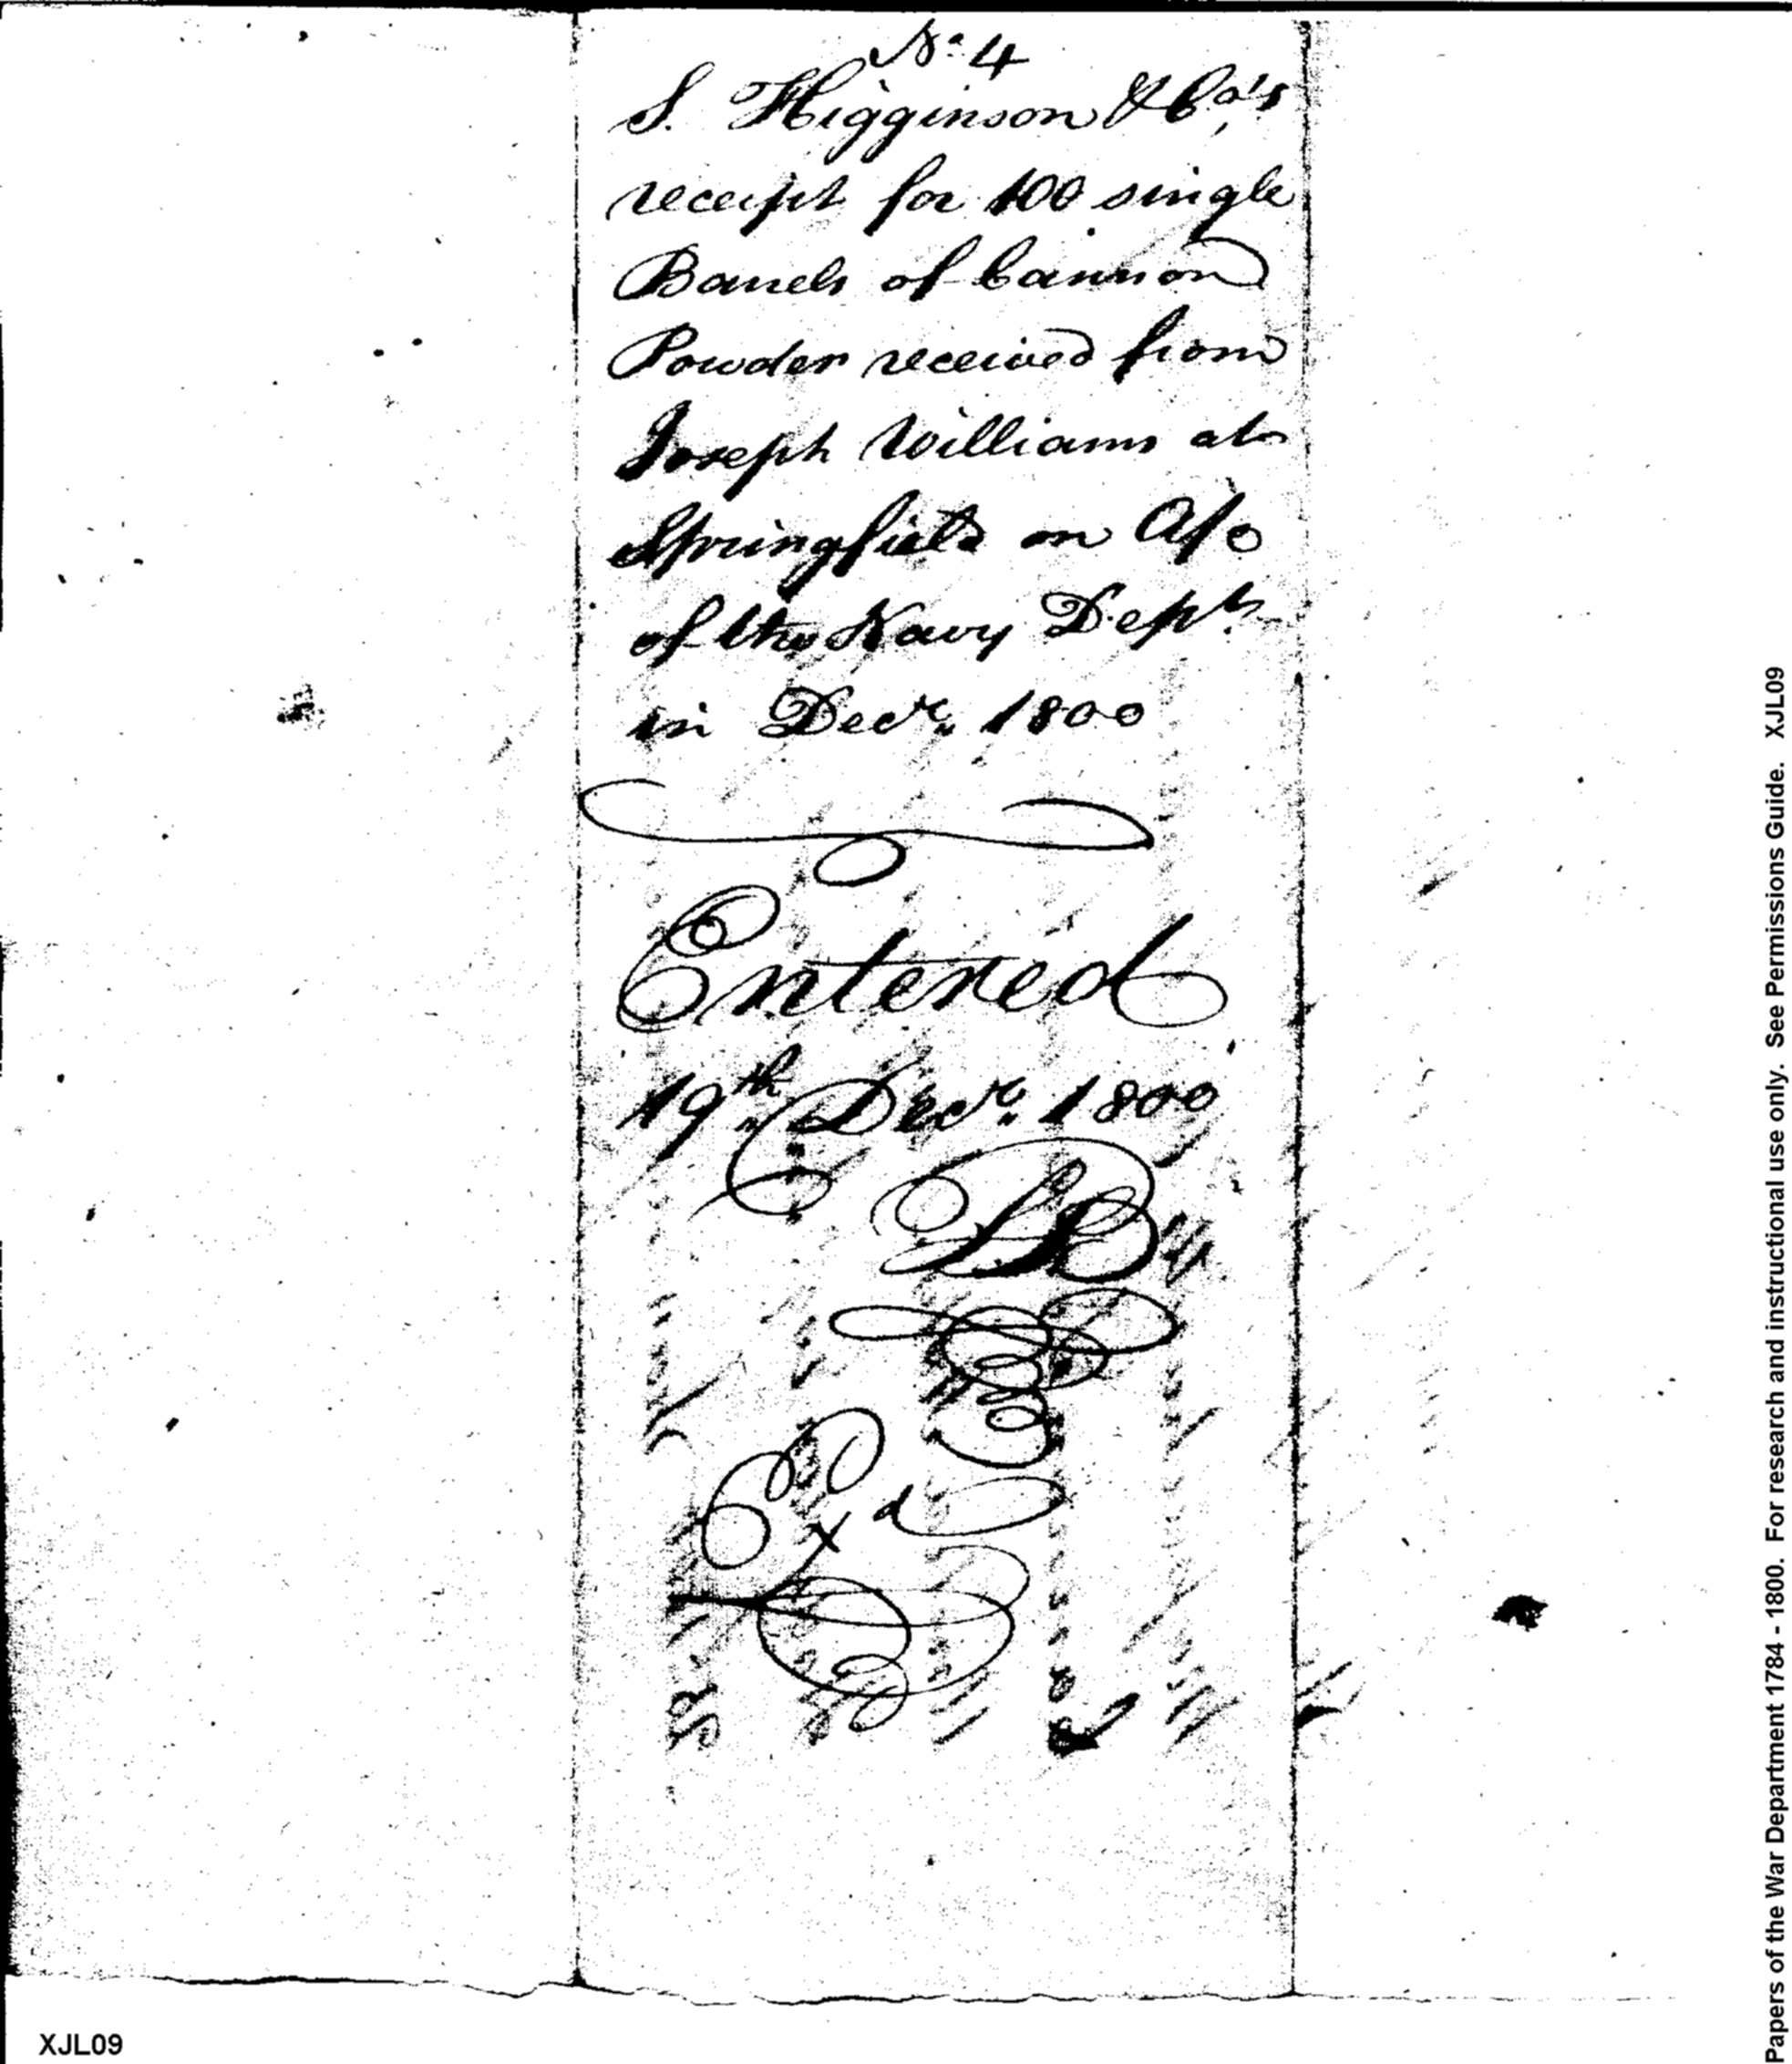 No. 4
S. Higginson & Co's
receipt for 100 single
Barrels of Cannon
Powder received from
Joseph Williams at
Springfield on A/c
of the Navy Dept.
in Decr. 1800
Entered
19th Decr. 1800
Exd
Papers of the War Department 1784 - 1800. For research and instructional use only. See Permissions Guide. XJL09
XJL09